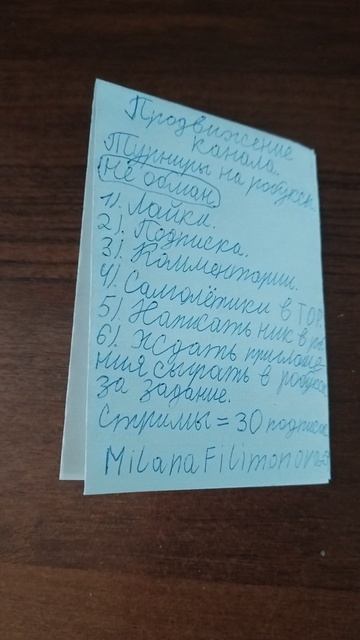 Продвижение
канала.
Турниры на робукс.
Не обман
1). Лайки.
2). Подписка.
3). Комментарии.
4). Самолётики в ТОП.
5). Написать ник в
6). Ждать приглаше-
ния сыграть в робукс
за задание.
Стримы = 30
Milana Filimonova